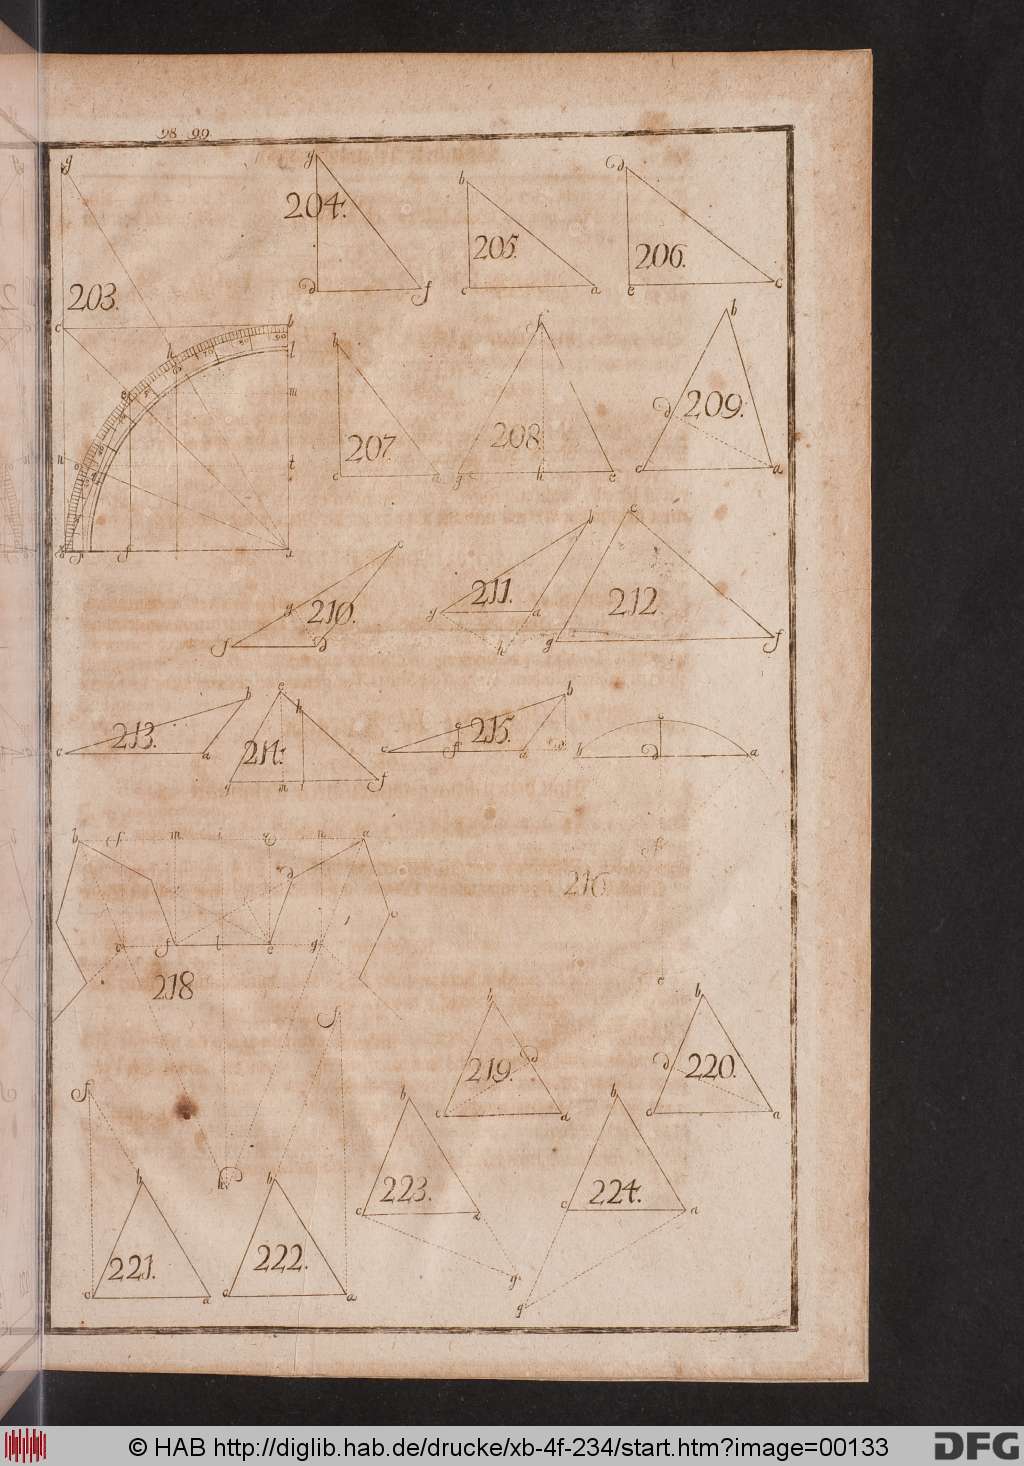 98 99.
g
g
204.
d f
b
205.
c a
d
206.
e c
203.
c b
h l
e m
n o t
d f a
b
207.
c a
f
208.
g h e
b
d 209.
c a
e
g 210.
f d
b
211.
g a
h
e
212.
g f
b
213.
c a
e h
214.
g n f
b
e 215.
c f a d
e
b d a
b f m i e n a
d
c
c f l e g
218
f
216.
e
b
219. d
c a
b
d 220.
c a
f
f
h
b
221.
c a
b
222.
c a
b
223.
c a
g
b
224.
c a
g
© HAB http://diglib.hab.de/drucke/xb-4f-234/start.htm?image=00133
DFG